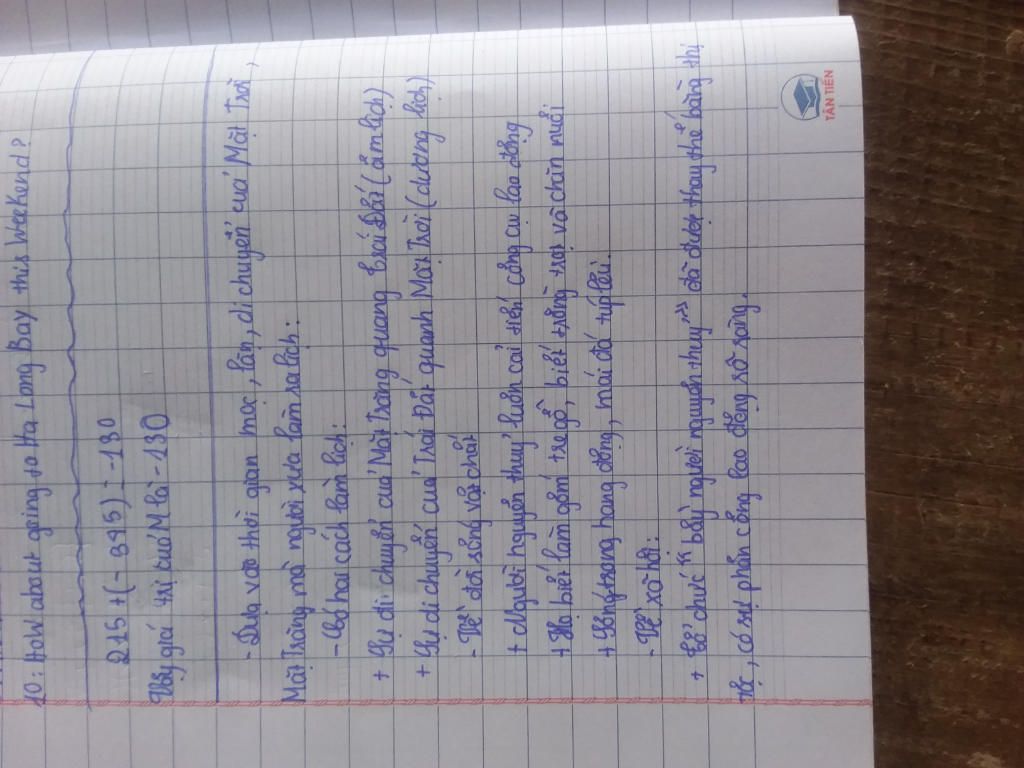 10: How about going to Ha Long Bay this Weekend?
215 + (- 345) = -130
Vậy giá trị của M là -130
- Dựa vào thời gian mọc, lặn, di chuyển của Mặt Trời,
Mặt Trăng mà người xưa làm ra lịch:
- Có hai cách làm lịch:
+ Sự di chuyển của Mặt Trăng quang trái Đất (âm lịch)
+ Sự di chuyển của Trái Đất quanh Mặt Trời (dương lịch)
- Về đời sống vật chất
+ Người nguyên thuỷ luôn cải tiến công cụ lao động
+ Họ biết làm gốm tre gỗ, biết trồng trọt và chăn nuôi
+ Sống trong hang động, mái đá túp lều.
- Về xã hội:
+ Tổ chức "bầy người nguyên thuỷ" đã được thay thế bằng thị
tộc, có sự phân công lao động rõ ràng.
TÂN TIẾN